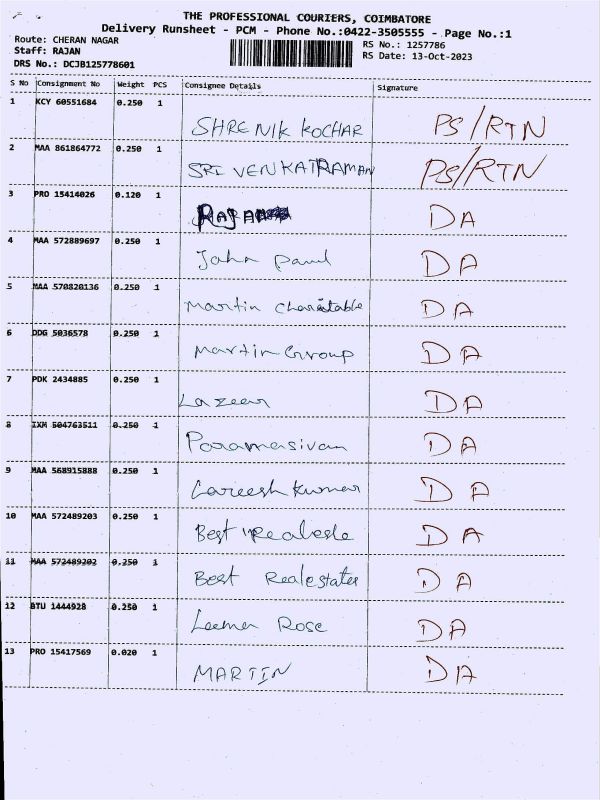 THE PROFESSIONAL COURIERS, COIMBATORE
Delivery Runsheet - PCM - Phone No.:0422-3505555 - Page No.:1
Route: CHERAN NAGAR RS No.: 1257786
Staff: RAJAN RS Date: 13-Oct-2023
DRS No.: DCJB125778601
S No Consignment No Weight PCS Consignee Details Signature
1 KCY 60551684 0.250 1
SHRENIK KOCHAR PS/RTN
2 MAA 861864772 0.250 1
SRI VENKATRAMAN PS/RTN
3 PRO 15414026 0.120 1
DA
4 MAA 572889697 0.250 1
John Paul DA
5 MAA 570820136 0.250 1
Martin Charitable DA
6 DDG 5036578 0.250 1
Martin Group DA
7 PDK 2434885 0.250 1
Lazeer DA
8 IXM 504763511 0.250 1
Paramasivan DA
9 MAA 568915888 0.250 1
Kumar DA
10 MAA 572489203 0.250 1
Best DA
11 MAA 572489202 0.250 1
Best Realestates DA
12 BTU 1444928 0.250 1
Leema Rose DA
13 PRO 15417569 0.020 1
MARTIN DA